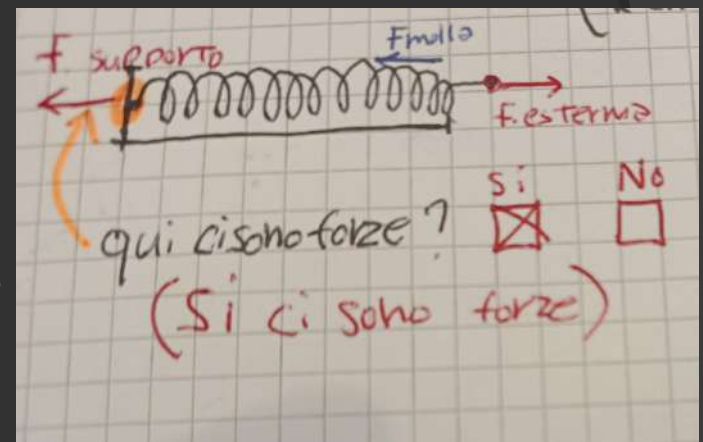 F supporto
Fmolla
F. esterna
Si No
qui ci sono forze?
(Si ci sono forze)